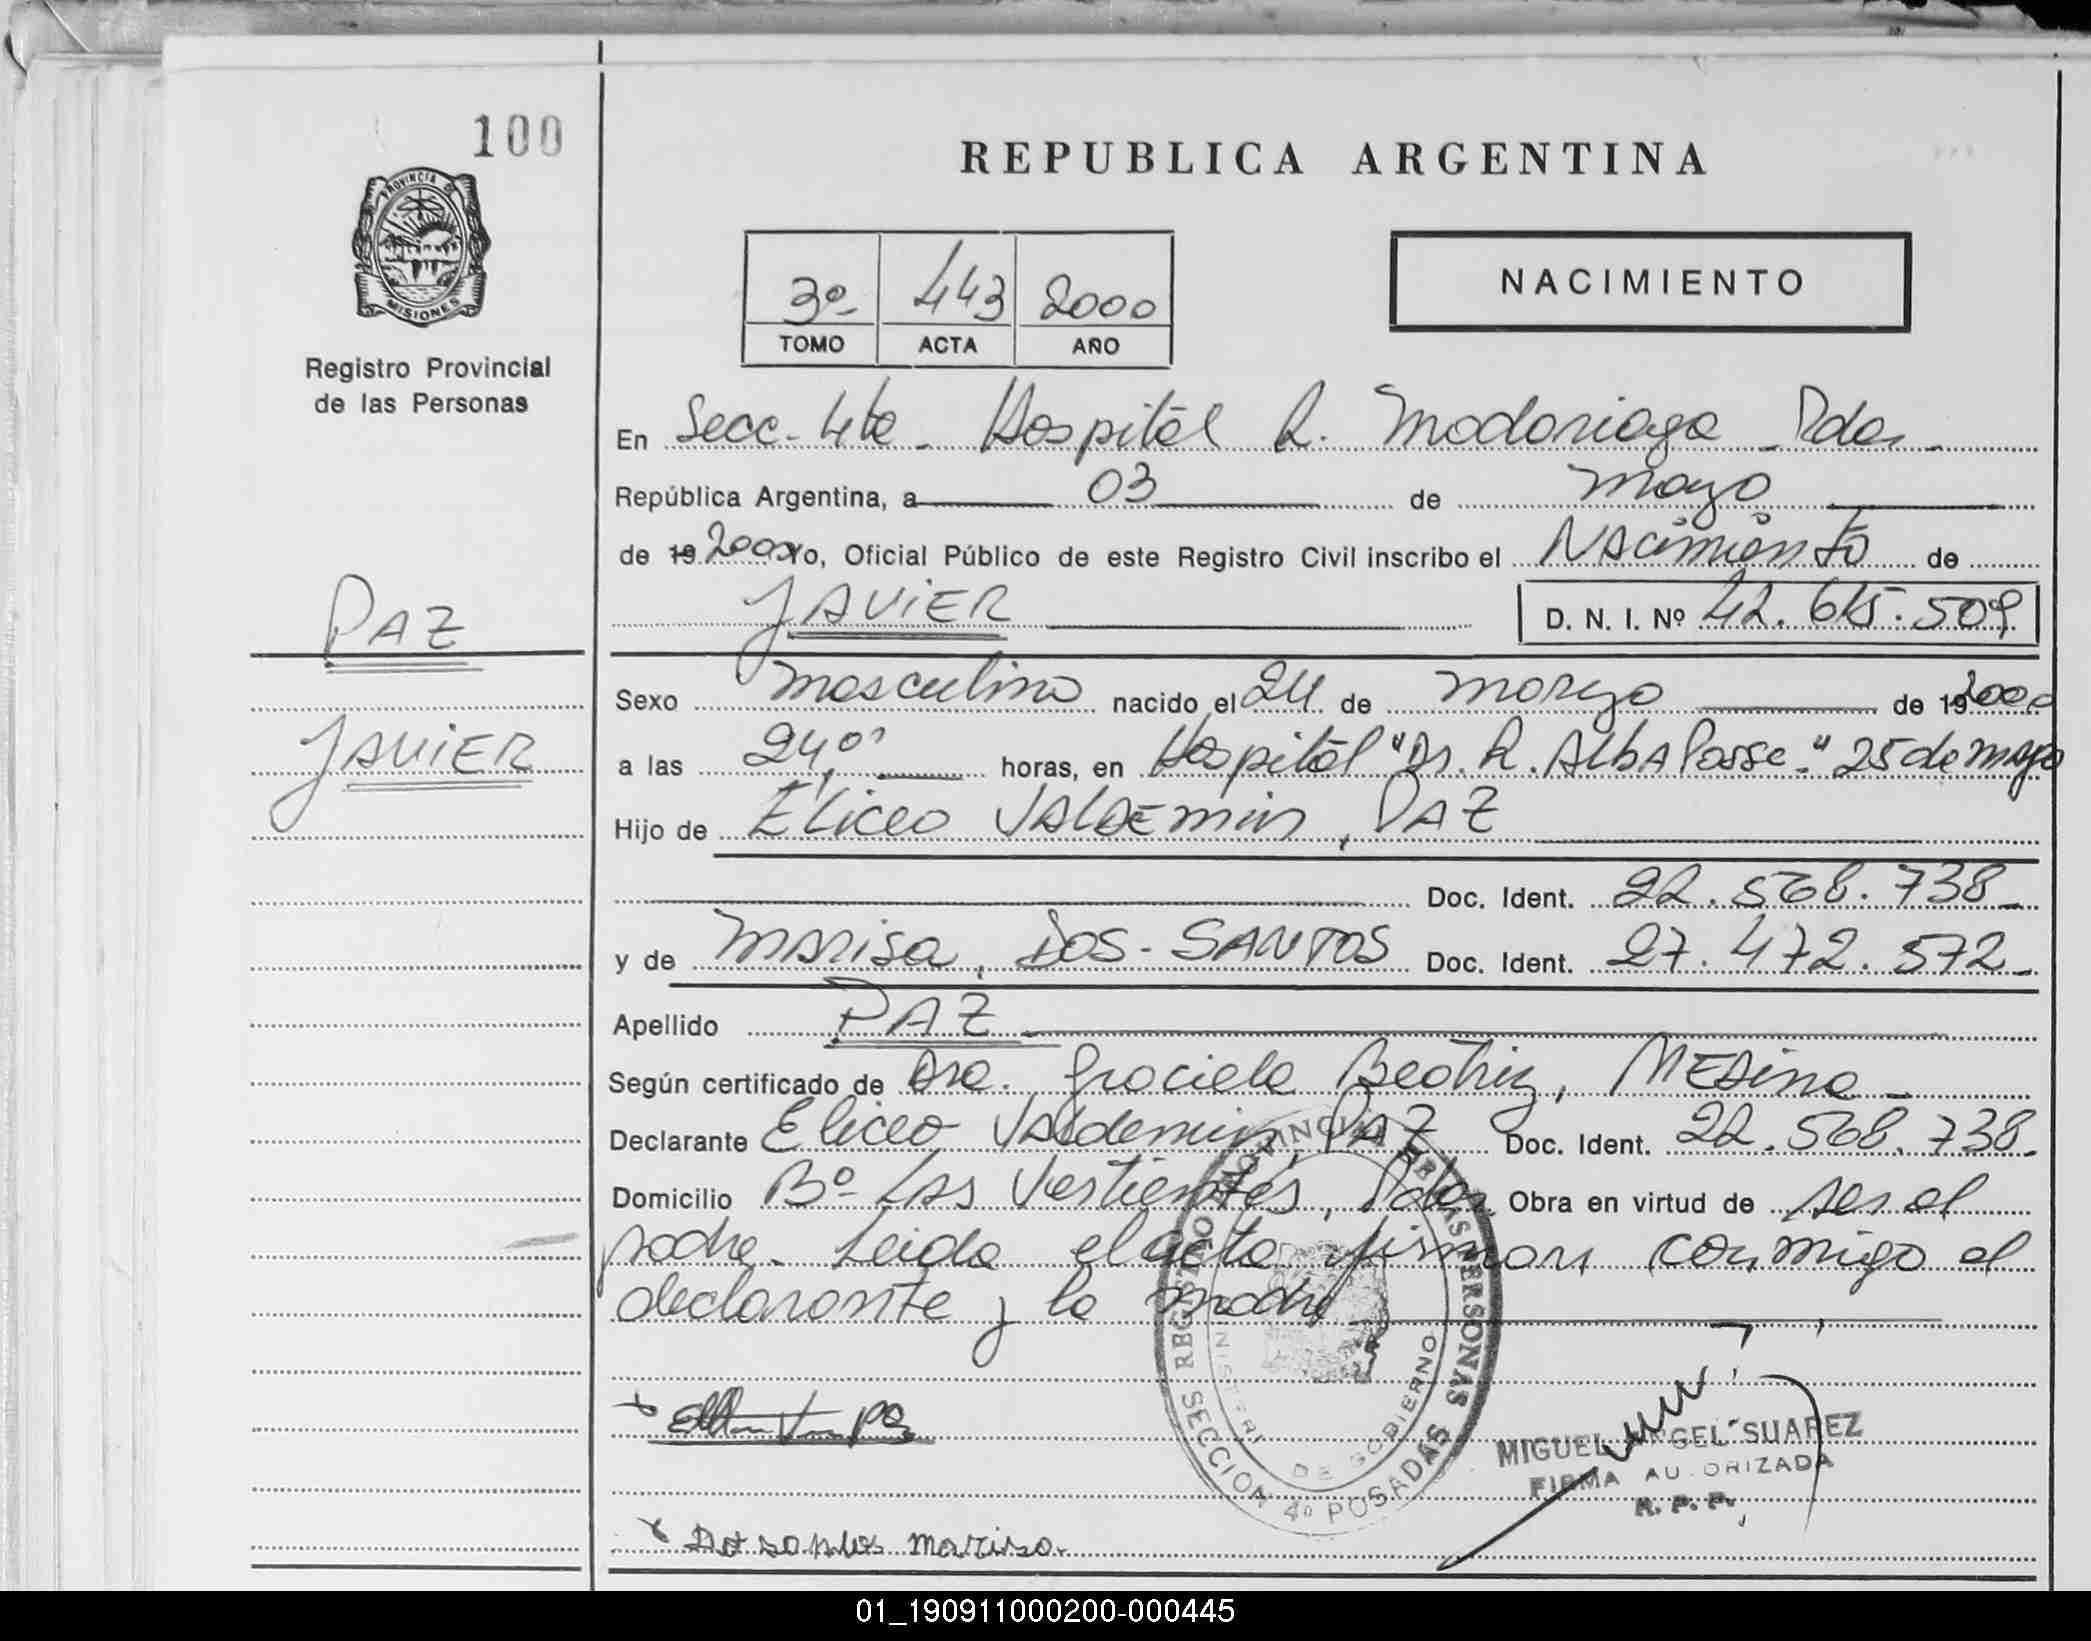 100
PROVINCIA DE
MISIONES
Registro Provincial
de las Personas
REPUBLICA ARGENTINA
3º 443 2000
TOMO ACTA AÑO
NACIMIENTO
En Secc. 4ta. Hospital R. Madariaga - Pdas.
República Argentina, a 03 de mayo
de 19 2000 Yo, Oficial Público de este Registro Civil inscribo el Nacimiento de
JAVIER
D. N. I. Nº 42.615.509
PAZ
JAVIER
Sexo masculino nacido el 24 de marzo de 19 2000
a las 24,0 horas, en Hospital "Dr. R. Alba Posse." 25 de mayo
Hijo de Eliceo Valdemin, PAZ
Doc. Ident. 22.568.738
y de Marisa, DOS-SANTOS Doc. Ident. 27.472.572
Apellido PAZ
Según certificado de Dra. Graciela Beatriz, Medina
Declarante Eliceo Valdemin, PAZ Doc. Ident. 22.568.738.
Domicilio Bº Las Vertientes, Pdas. Obra en virtud de ser el
padre. Leida el acta firman conmigo el
declarante y la madre
REGISTRO PROVINCIAL DE LAS PERSONAS
SECCION 4º POSADAS
MINISTERIO DE GOBIERNO
MIGUEL ANGEL SUAREZ
FIRMA AUTORIZADA
R. P. P.
x Dos santos marisa.
01_190911000200-000445